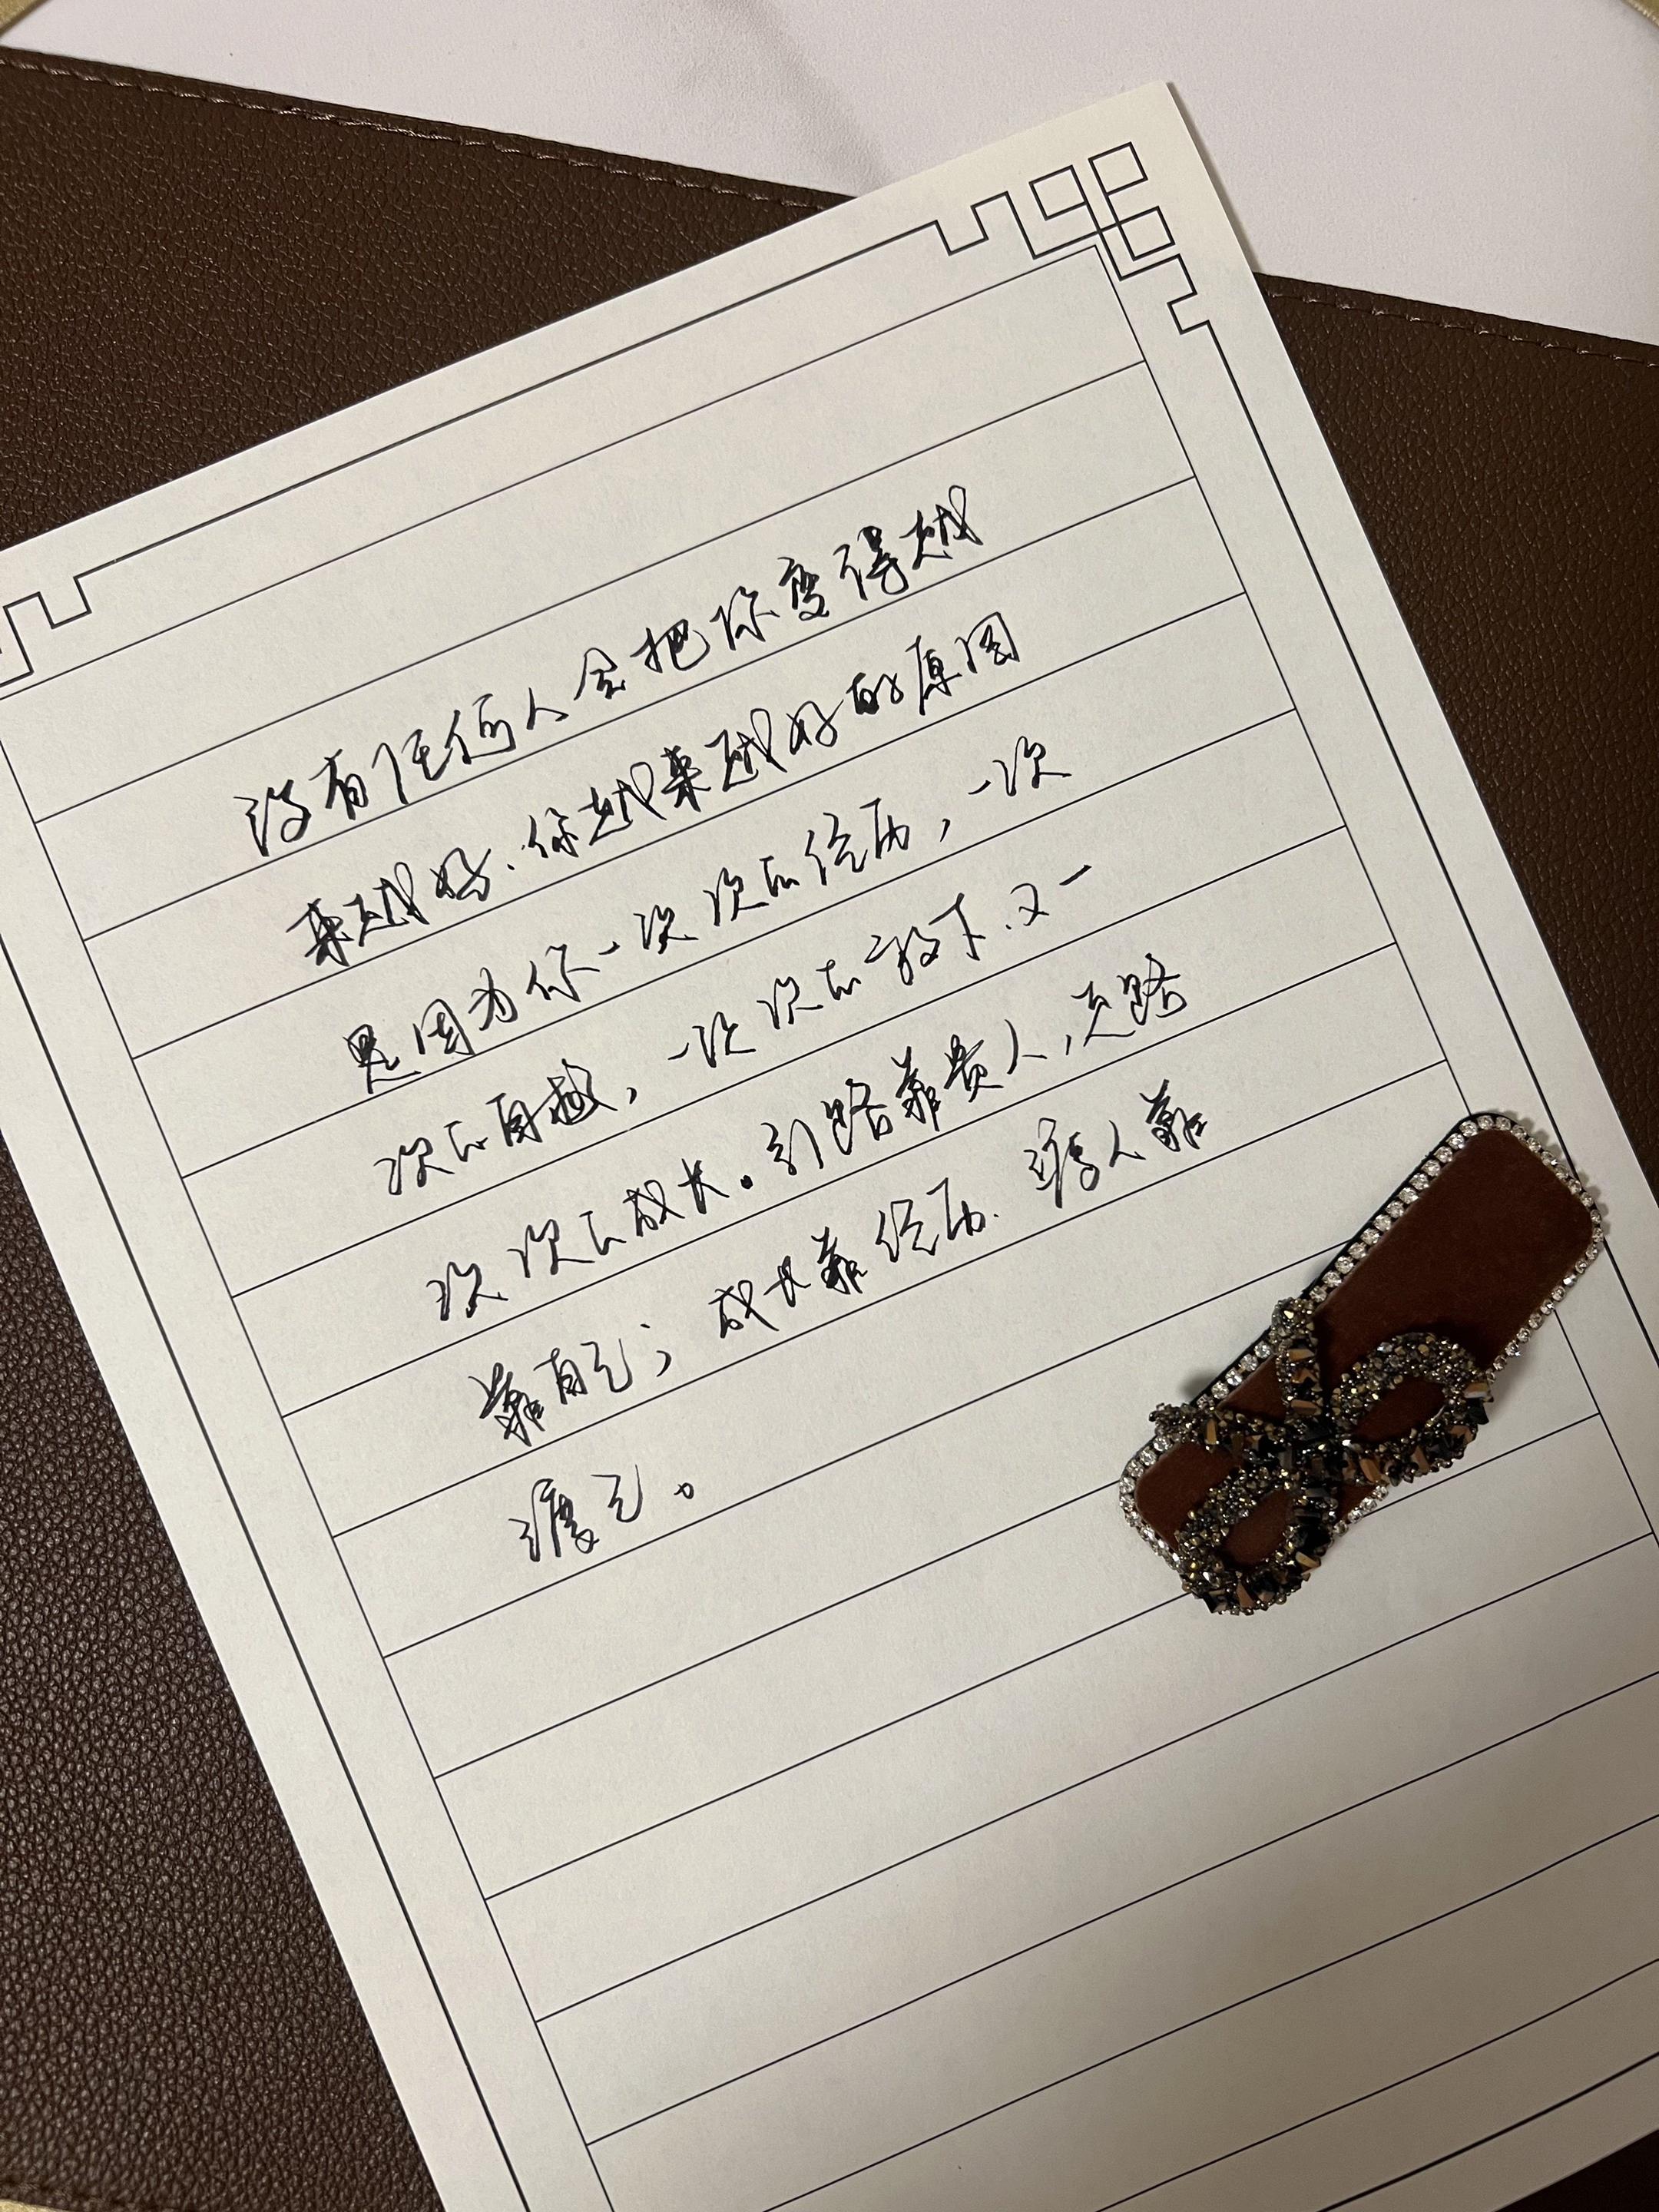 没有任何人会把你变得越
来越好.你越来越好的原因
是因为你一次次的经历,一次
次的自越,一次次的放下.又一
次次的成长。引路靠贵人,走路
靠自己;成长靠经历.渡人靠
渡己。